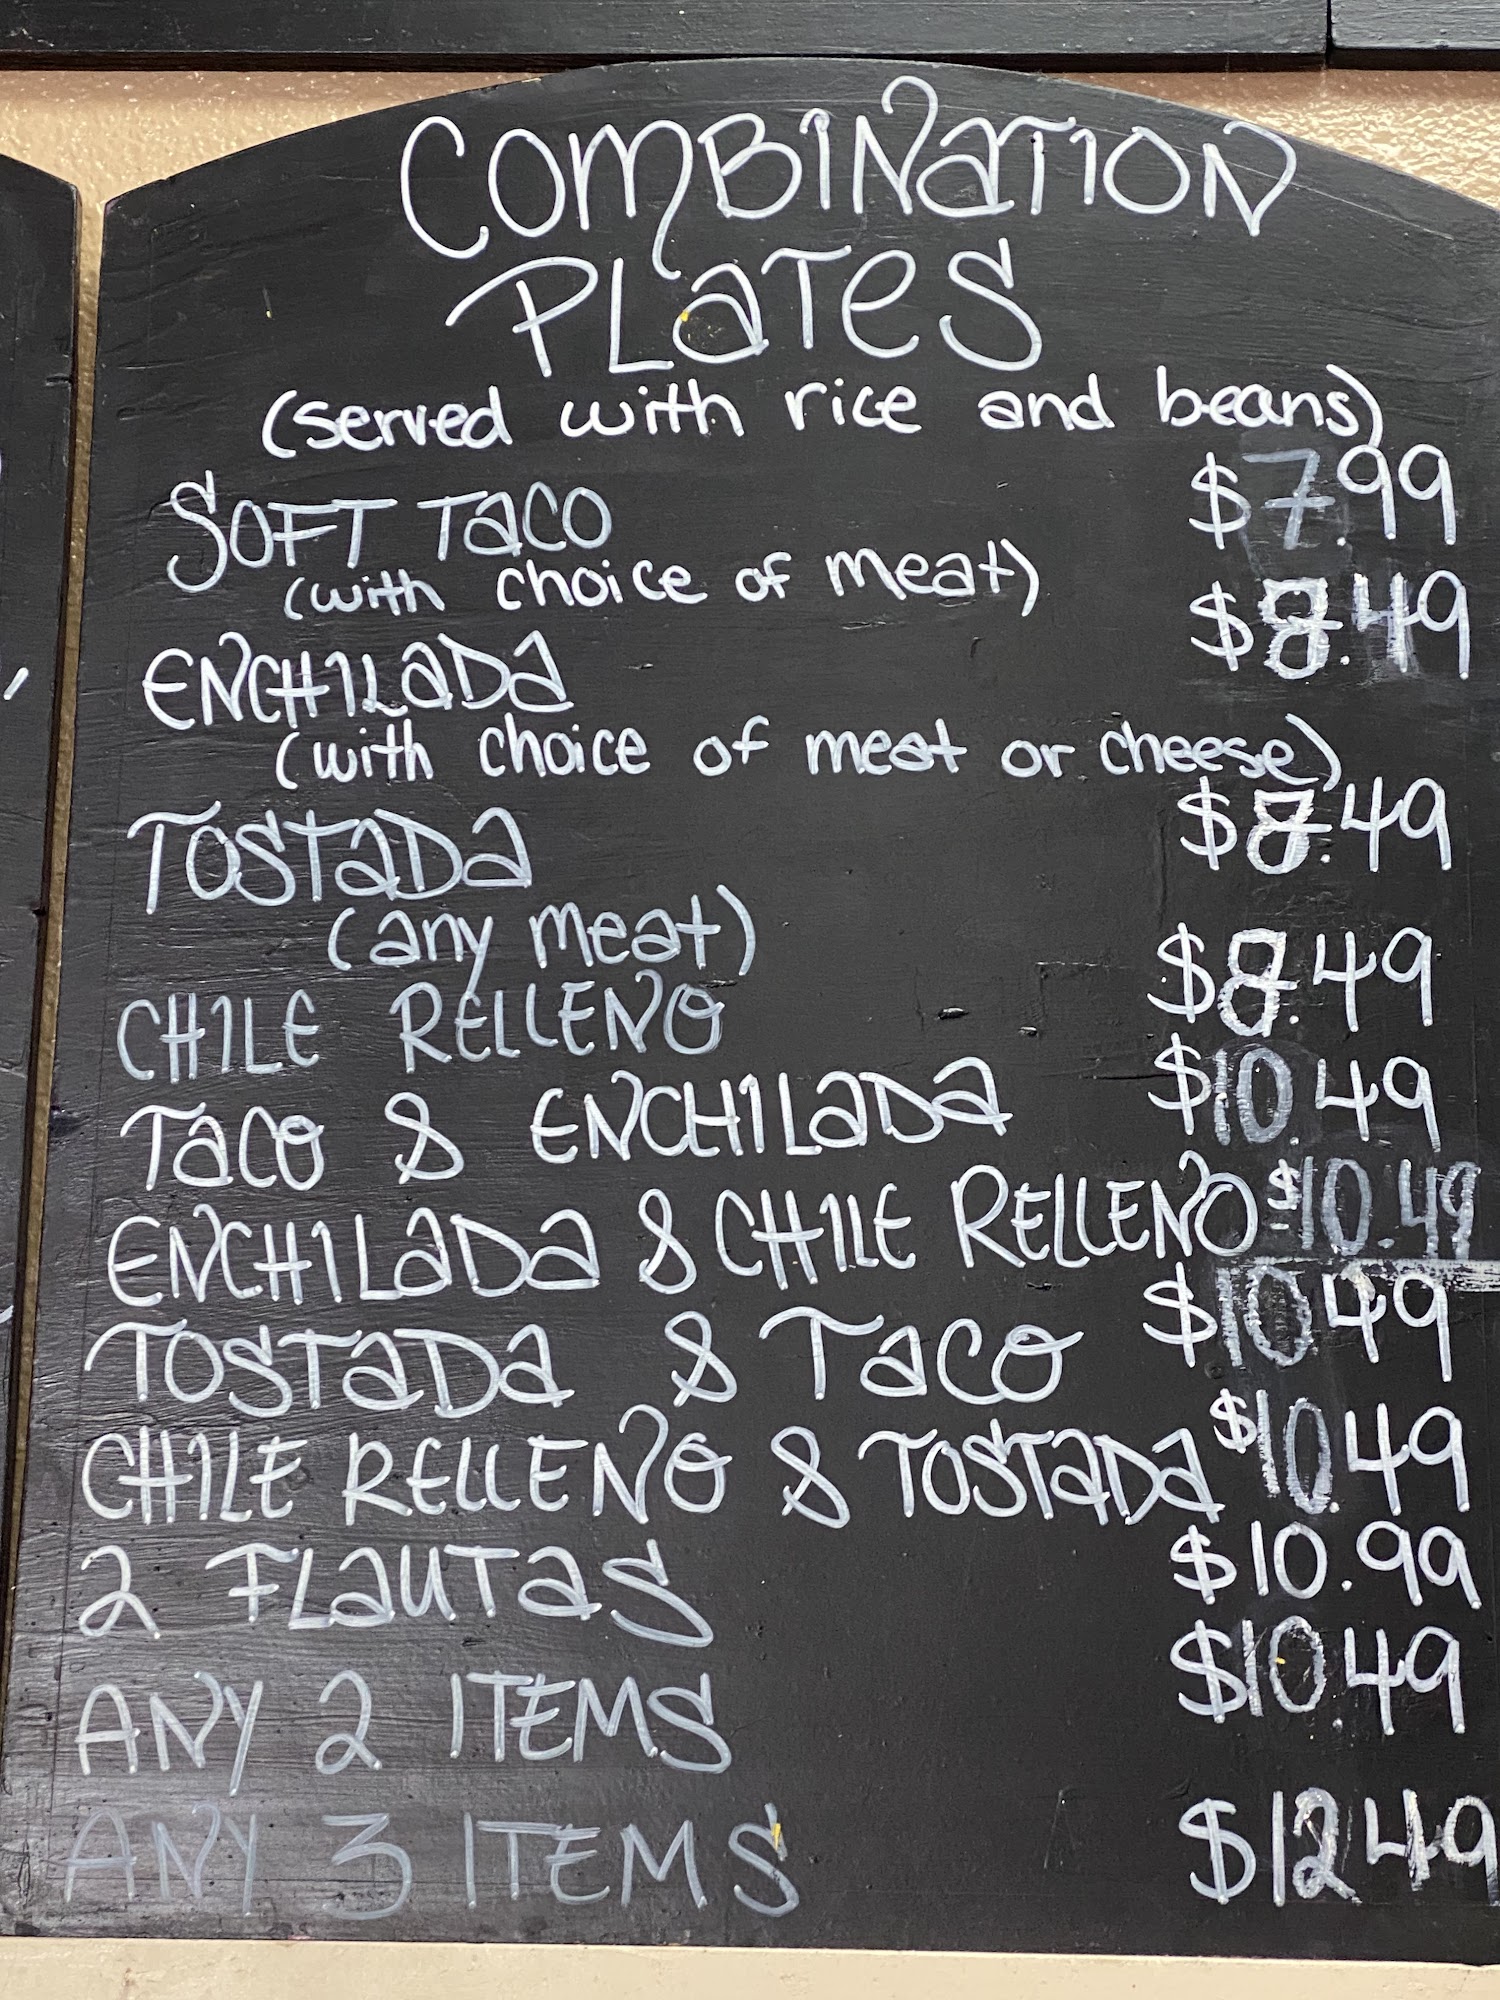 COMBINATION
PLATES
(served with rice and beans)
SOFT TACO $7.99
(with choice of meat)
ENCHILADA $8.49
(with choice of meat or cheese)
TOSTADA $8.49
(any meat)
CHILE RELLENO $8.49
TACO & ENCHILADA $10.49
ENCHILADA & CHILE RELLENO $10.49
TOSTADA & TACO $10.49
CHILE RELLENO & TOSTADA $10.49
2 FLAUTAS $10.99
ANY 2 ITEMS $10.49
ANY 3 ITEMS $12.49